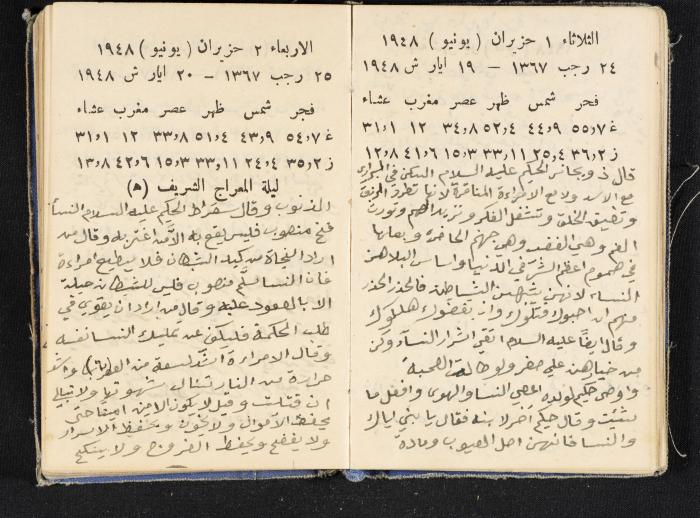 الثلاثاء ١ حزيران ( يونيو ) ١٩٤٨
٢٤ رجب ١٣٦٧ – ١٩ ايار ش ١٩٤٨
فجر شمس ظهر عصر مغرب عشاء
غ ٧ر٥٥ ٩ر٤٤ ٤ر٥٢ ٨ر٣٤ ١٢ ١ر٣١
ز ٢ر٣٦ ٤ر٢٥ ١١ر٣٣ ٣ر١٥ ٦ر٤١ ٨ر١٢
قال ذو الحكم عليه السلام السكن في البراري
مع الاسد ولا مع الامراءة المناقرة لانها تطرق
وتضيق الخلق وتشغل الفكر وتزيد الهم وتورث
الغم وهي الغضب وهي جهنم الحاضرة وبعلها
في هموم اعظم الشر في الدنيا واساس البلا هن
النساء لانهن يشبهن الشياطين فالحذر الحذر
منهم ان احبوك قتلوك وان بغضوك هلكوك
وقال ايضا عليه السلام اتقي اشرار النساء وكن
من خيارهن على حضر ولو طالت الصحبة
واوصى حكيم لولده اعصي النسا والهوى وافعل ما
شئت وقال حكيم اخر لابنه فقال يا بني اياك
والنسا فانهن اصل العيوب ومادة
الاربعاء ٢ حزيران ( يونيو ) ١٩٤٨
٢٥ رجب ١٣٦٧ – ٢٠ ايار ش ١٩٤٨
فجر شمس ظهر عصر مغرب عشاء
غ ٧ر٥٤ ٩ر٤٣ ٤ر٥١ ٨ر٣٣ ١٢ ١ر٣١
ز ٢ر٣٥ ٤ر٢٤ ١١ر٣٣ ٣ر١٥ ٦ر٤٢ ٨ر١٣
ليلة المعراج الشريف (ه)
الذنوب وقال سقراط الحكم عليه السلام النسا
فخ منصوب فليس يقع به الا من اغتر به وقال من
اراد النجاة من كيد الشيطان فلا يطيع امراءة
فان النسا سلم منصوب فليس للشيطان حيلة
الا بالصعود عليه وقال من اراد ان يقوى في
طلب الحكمة فليكف عن تمليك النسا نفسه
وقال الامراءة اشد لسعة من واشد
حرارة من النار تنال شهوتها ولا تبالي
ان قتلت وقيل لا يكون الامين امينا حتى
يحفظ الاموال ولا يخون ويحفظ الاسرار
ولا يفضح ويحفظ الفروج ولا ينكح